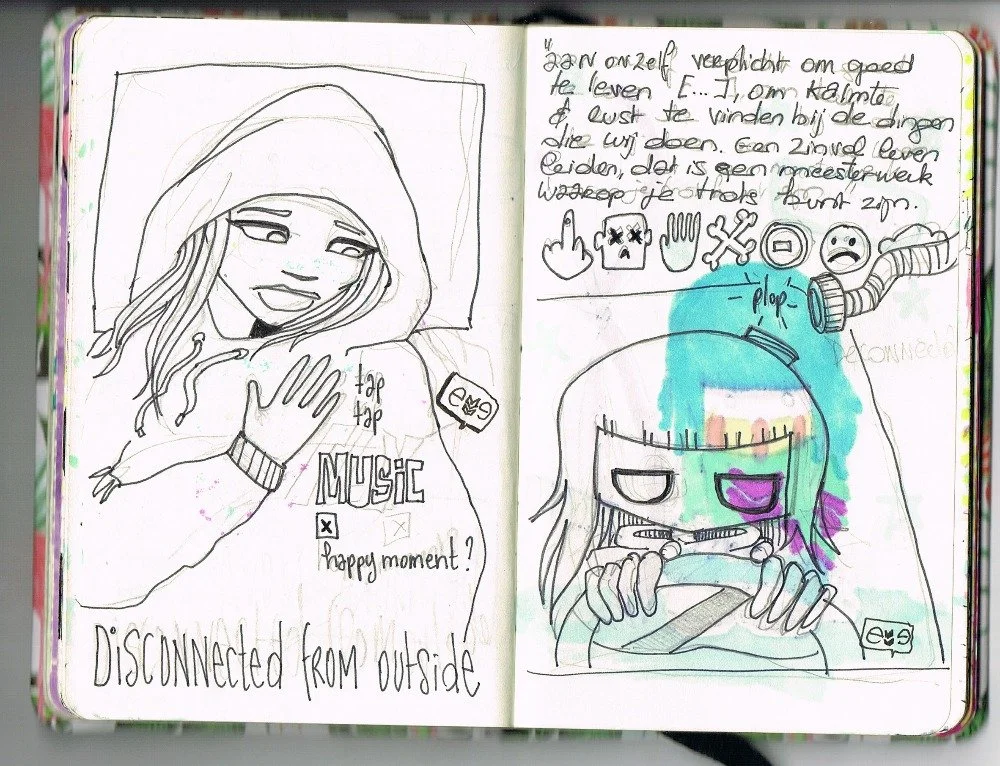 tap
tap
MUSIC
x
happy moment?
DiSCONNected from outside
"aan onzelf verplicht om goed
te leven [...], om kalmte
& lust te vinden bij de dingen
die wij doen. Een zinvol leven
leiden, dat is een meesterwerk
waarop je trots kunt zijn.
- plop -
Deconnected